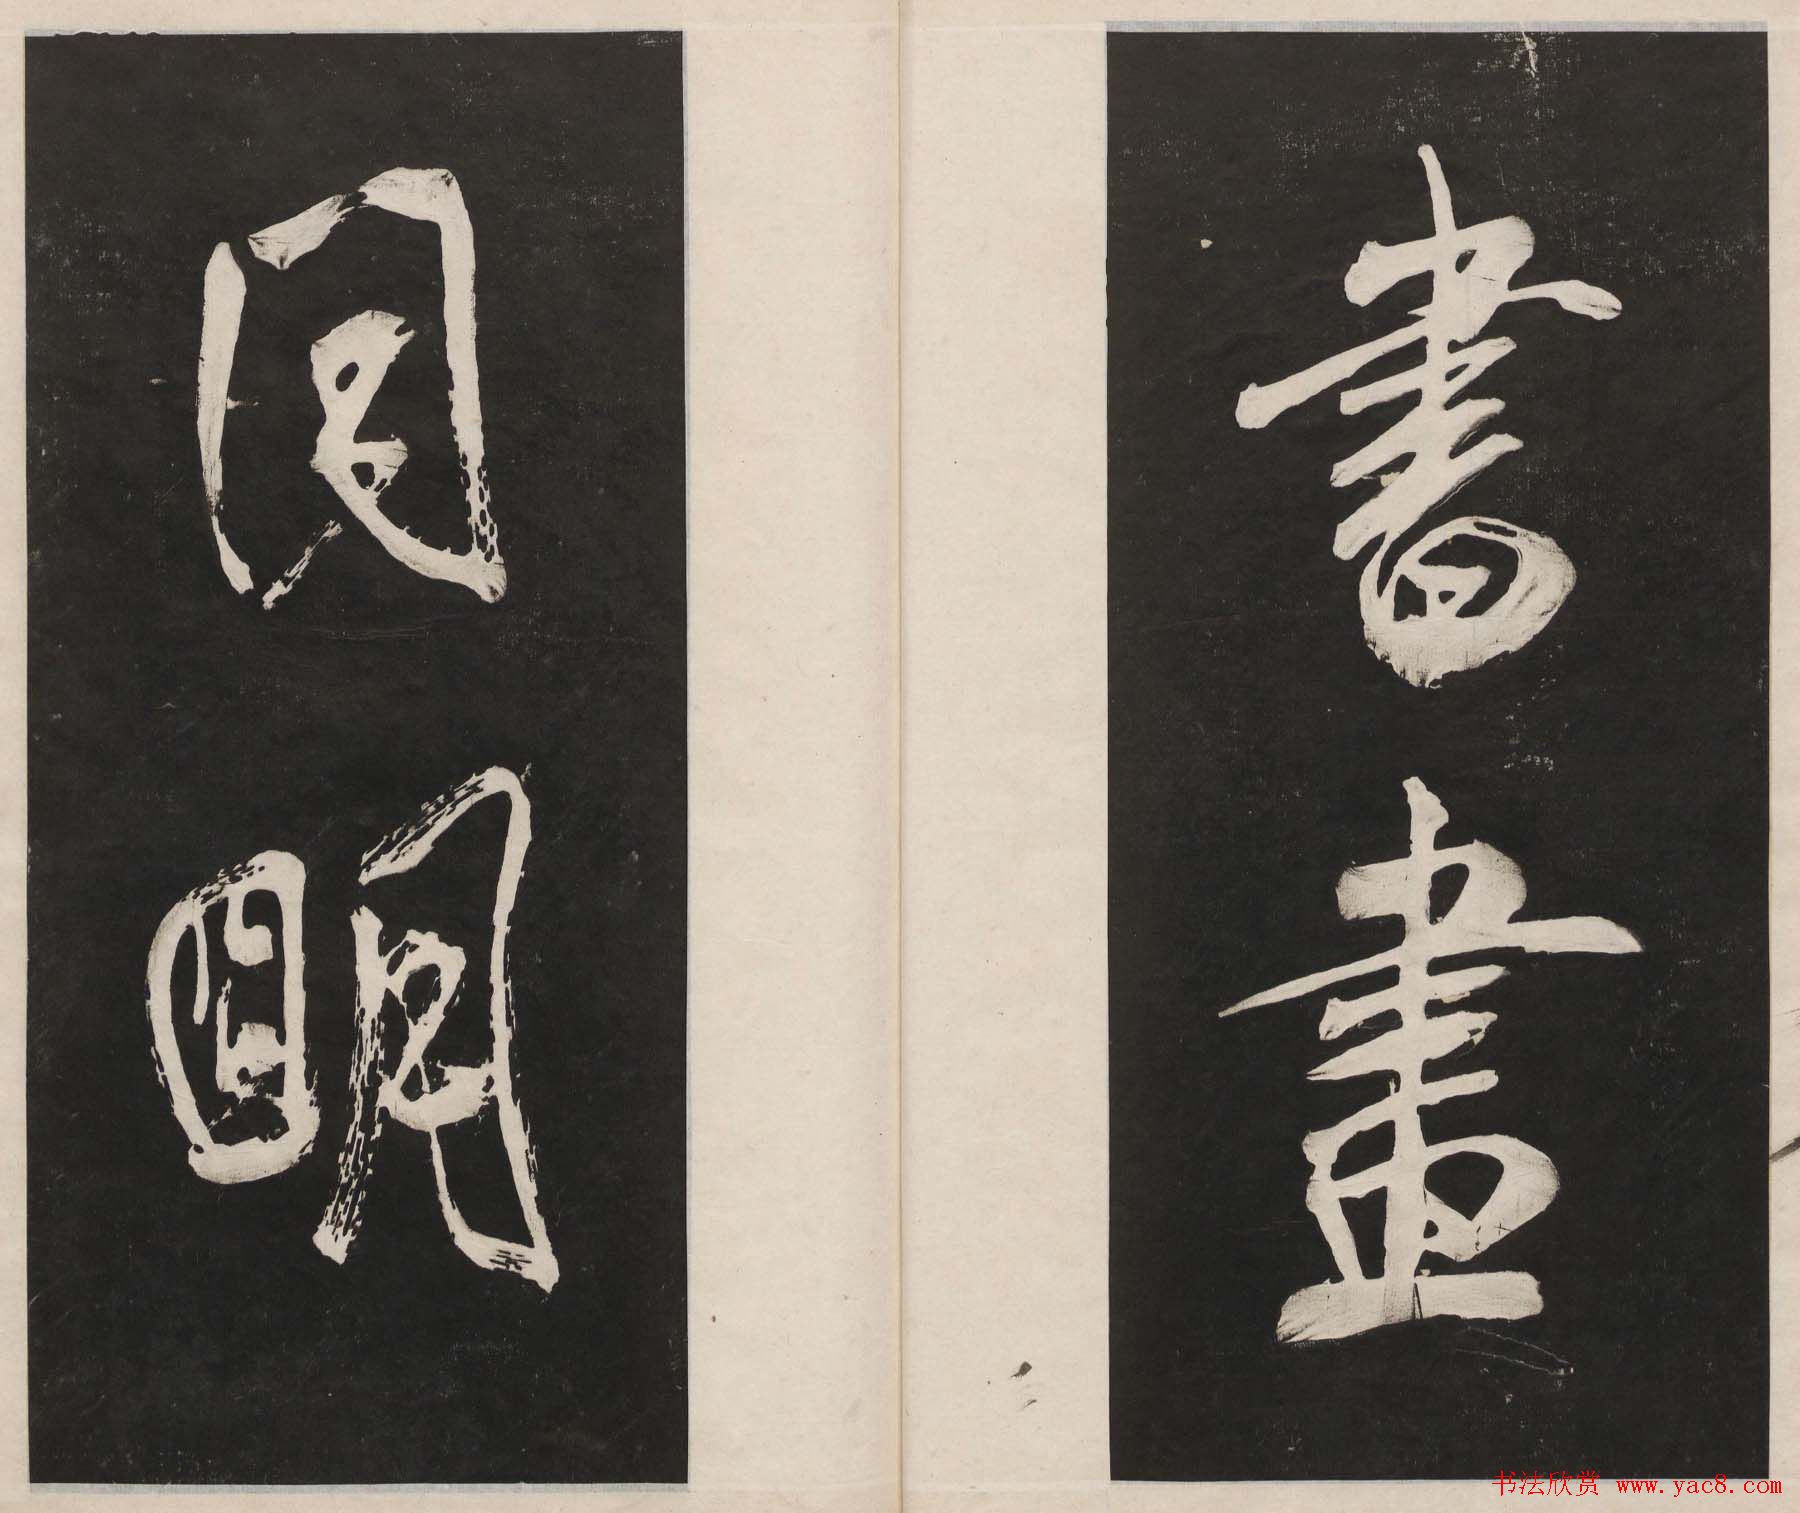 書畫
同明
书法欣赏 www.yac8.com